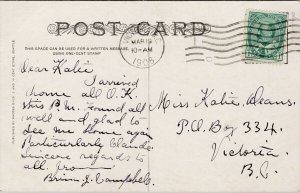 POST CARD
THIS SPACE CAN BE USED FOR A WRITTEN MESSAGE,
USING ONE-CENT STAMP
MAR 19
10-AM
1908
Dear Katie
I arrived
home all O.K.
this P.M. Found all
well and glad to
see me home again
Particularly Claude
Sincere regards to
all from
Campbell
Miss Katie Deans.
P.O. Box 334.
Victoria.
B.C.